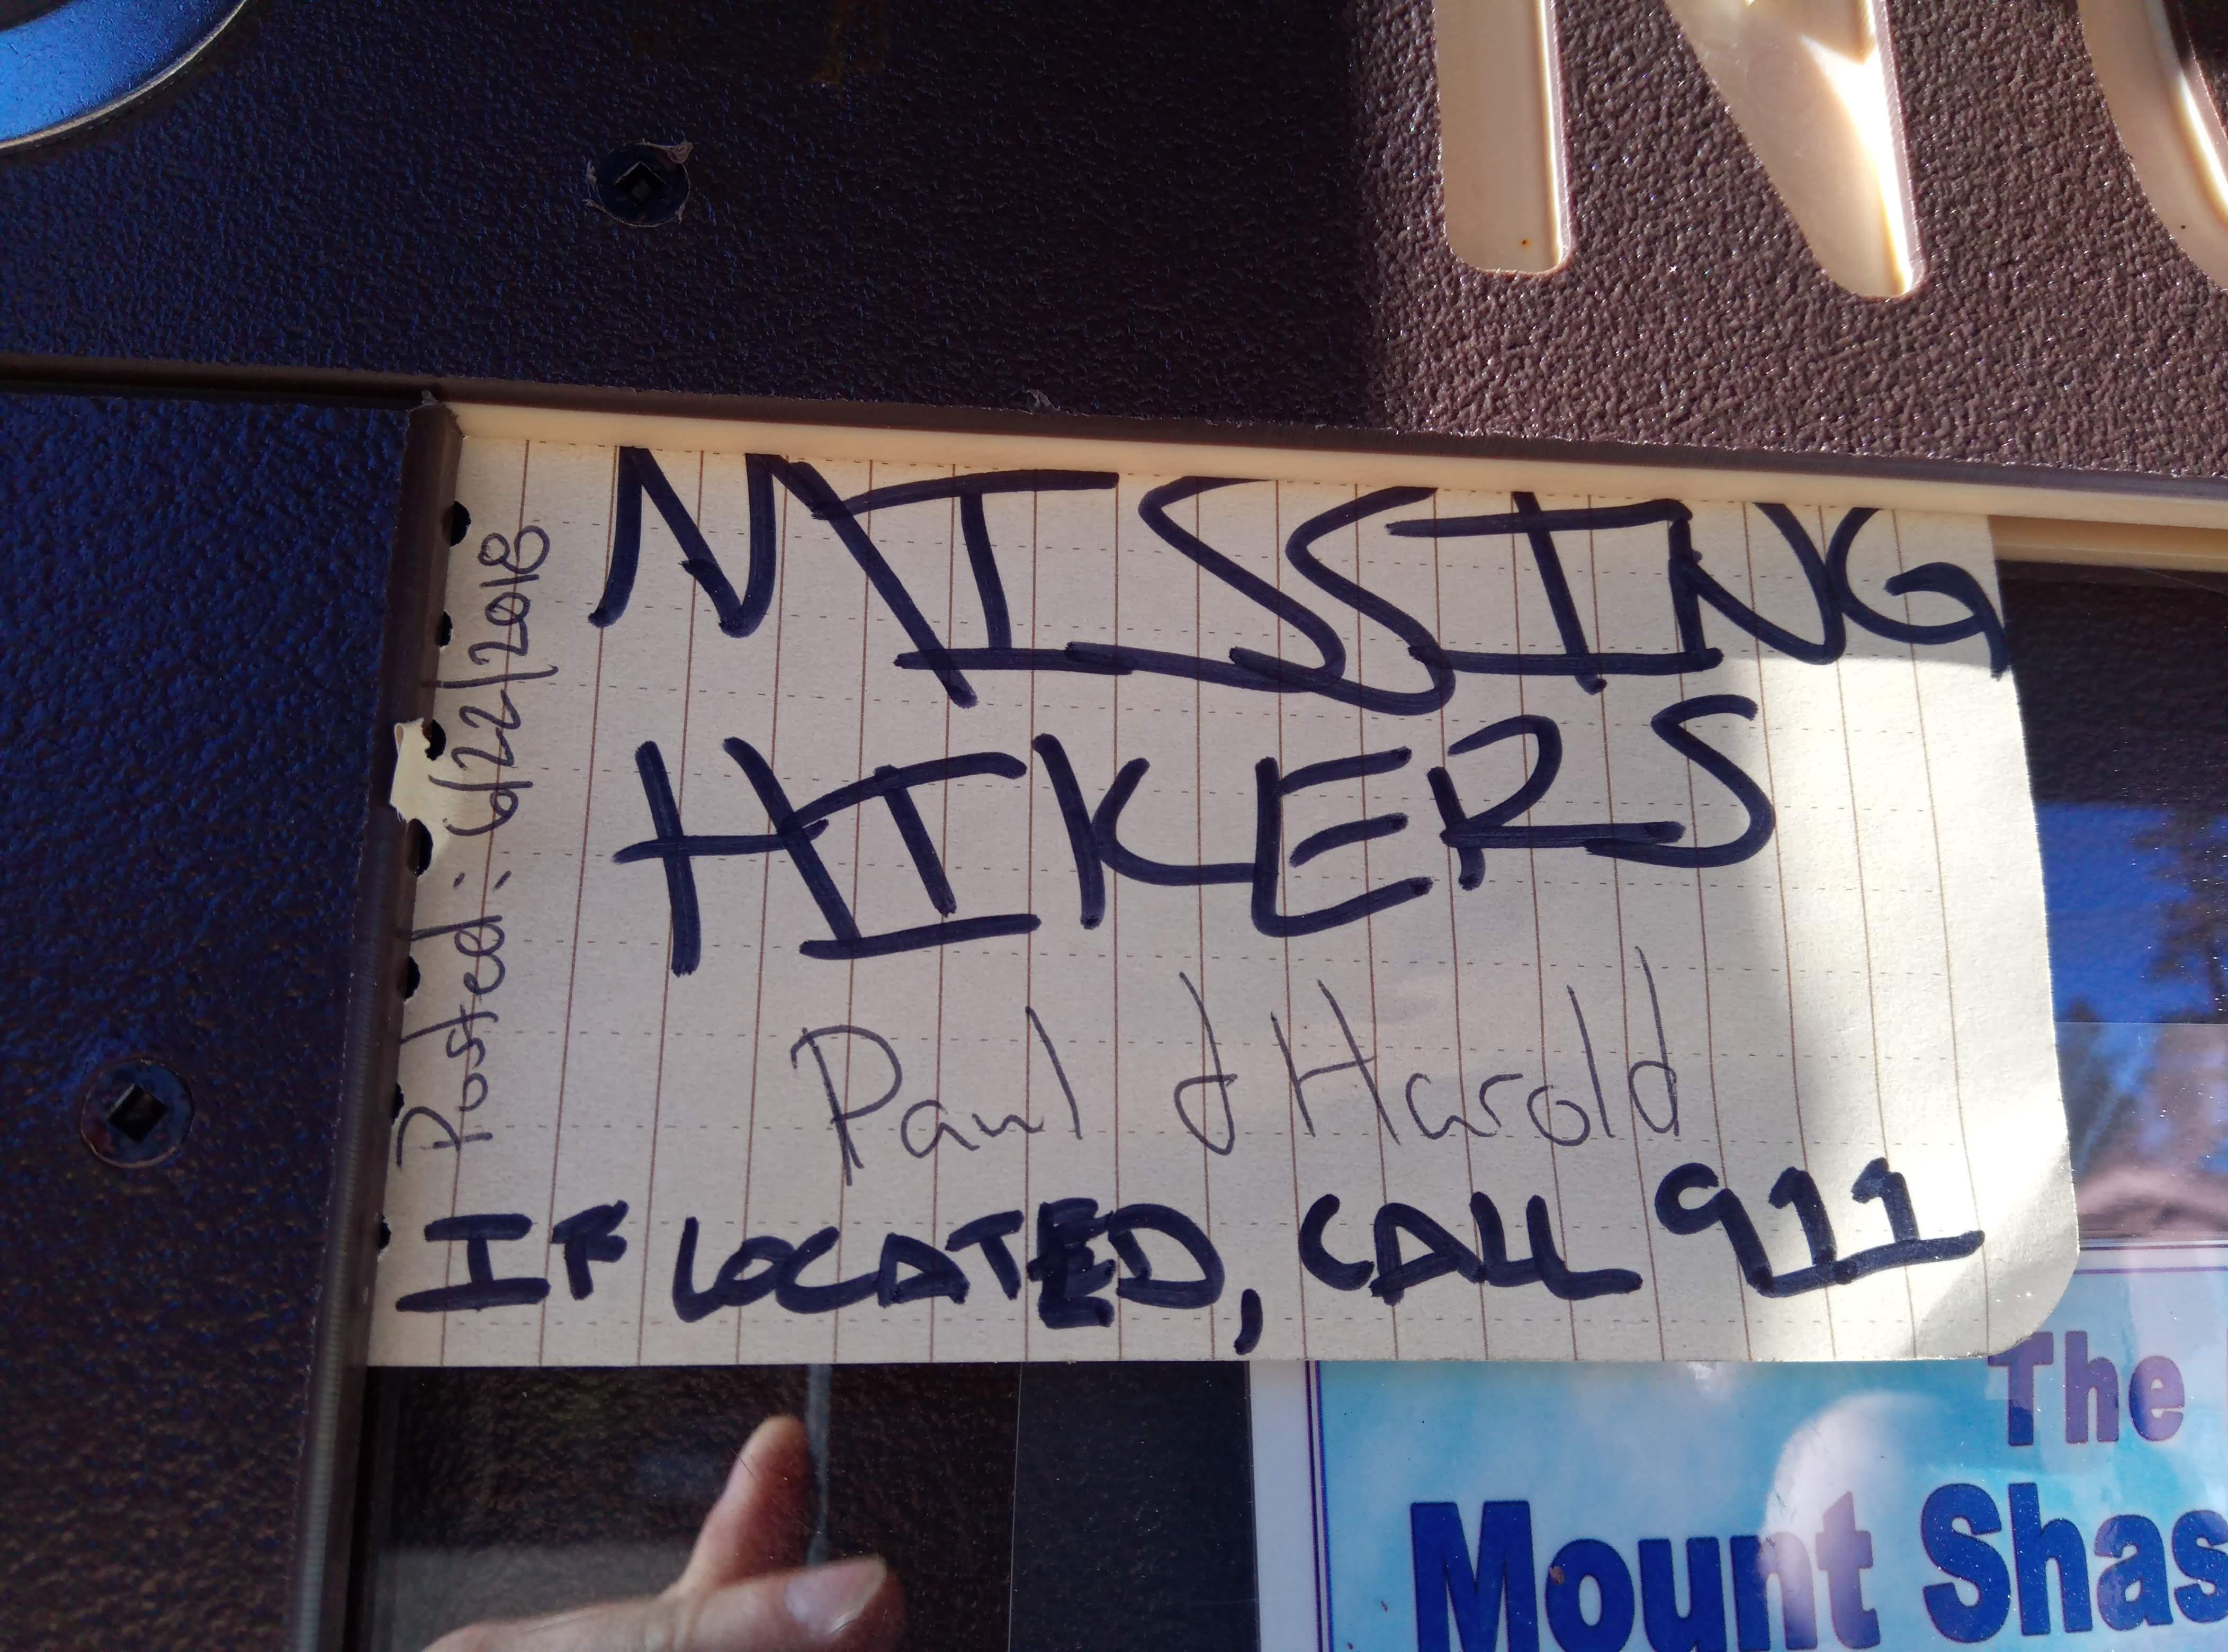 MISSING
HIKERS
Paul & Harold
IF LOCATED, CALL 911
Posted: 6/22/2018
The
Mount Shas